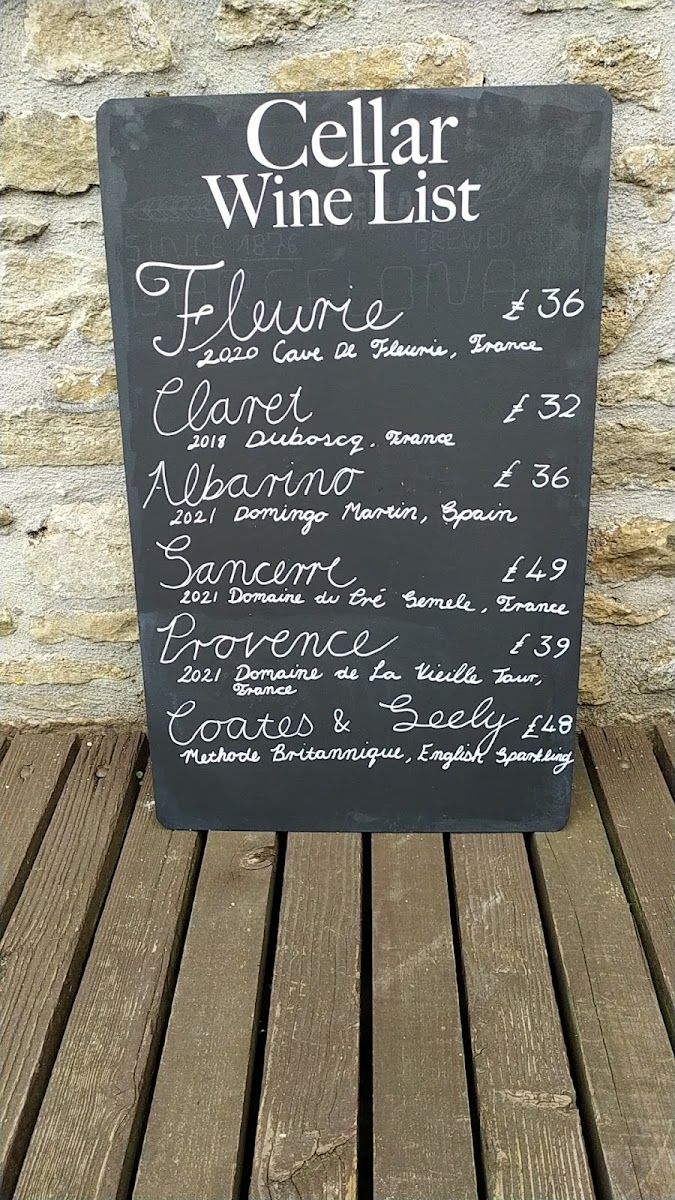 Cellar
Wine List
SINCE 1876
BREWED
Fleurie £36
2020 Cave De Fleurie, France
Claret £32
2018 Duboscq, France
Albarino £36
2021 Domingo Martin, Spain
Sancerre £49
2021 Domaine du Pré Semele, France
Provence £39
2021 Domaine de La Vieille Tour,
France
Coates & Seely £48
Methode Britannique, English Sparkling